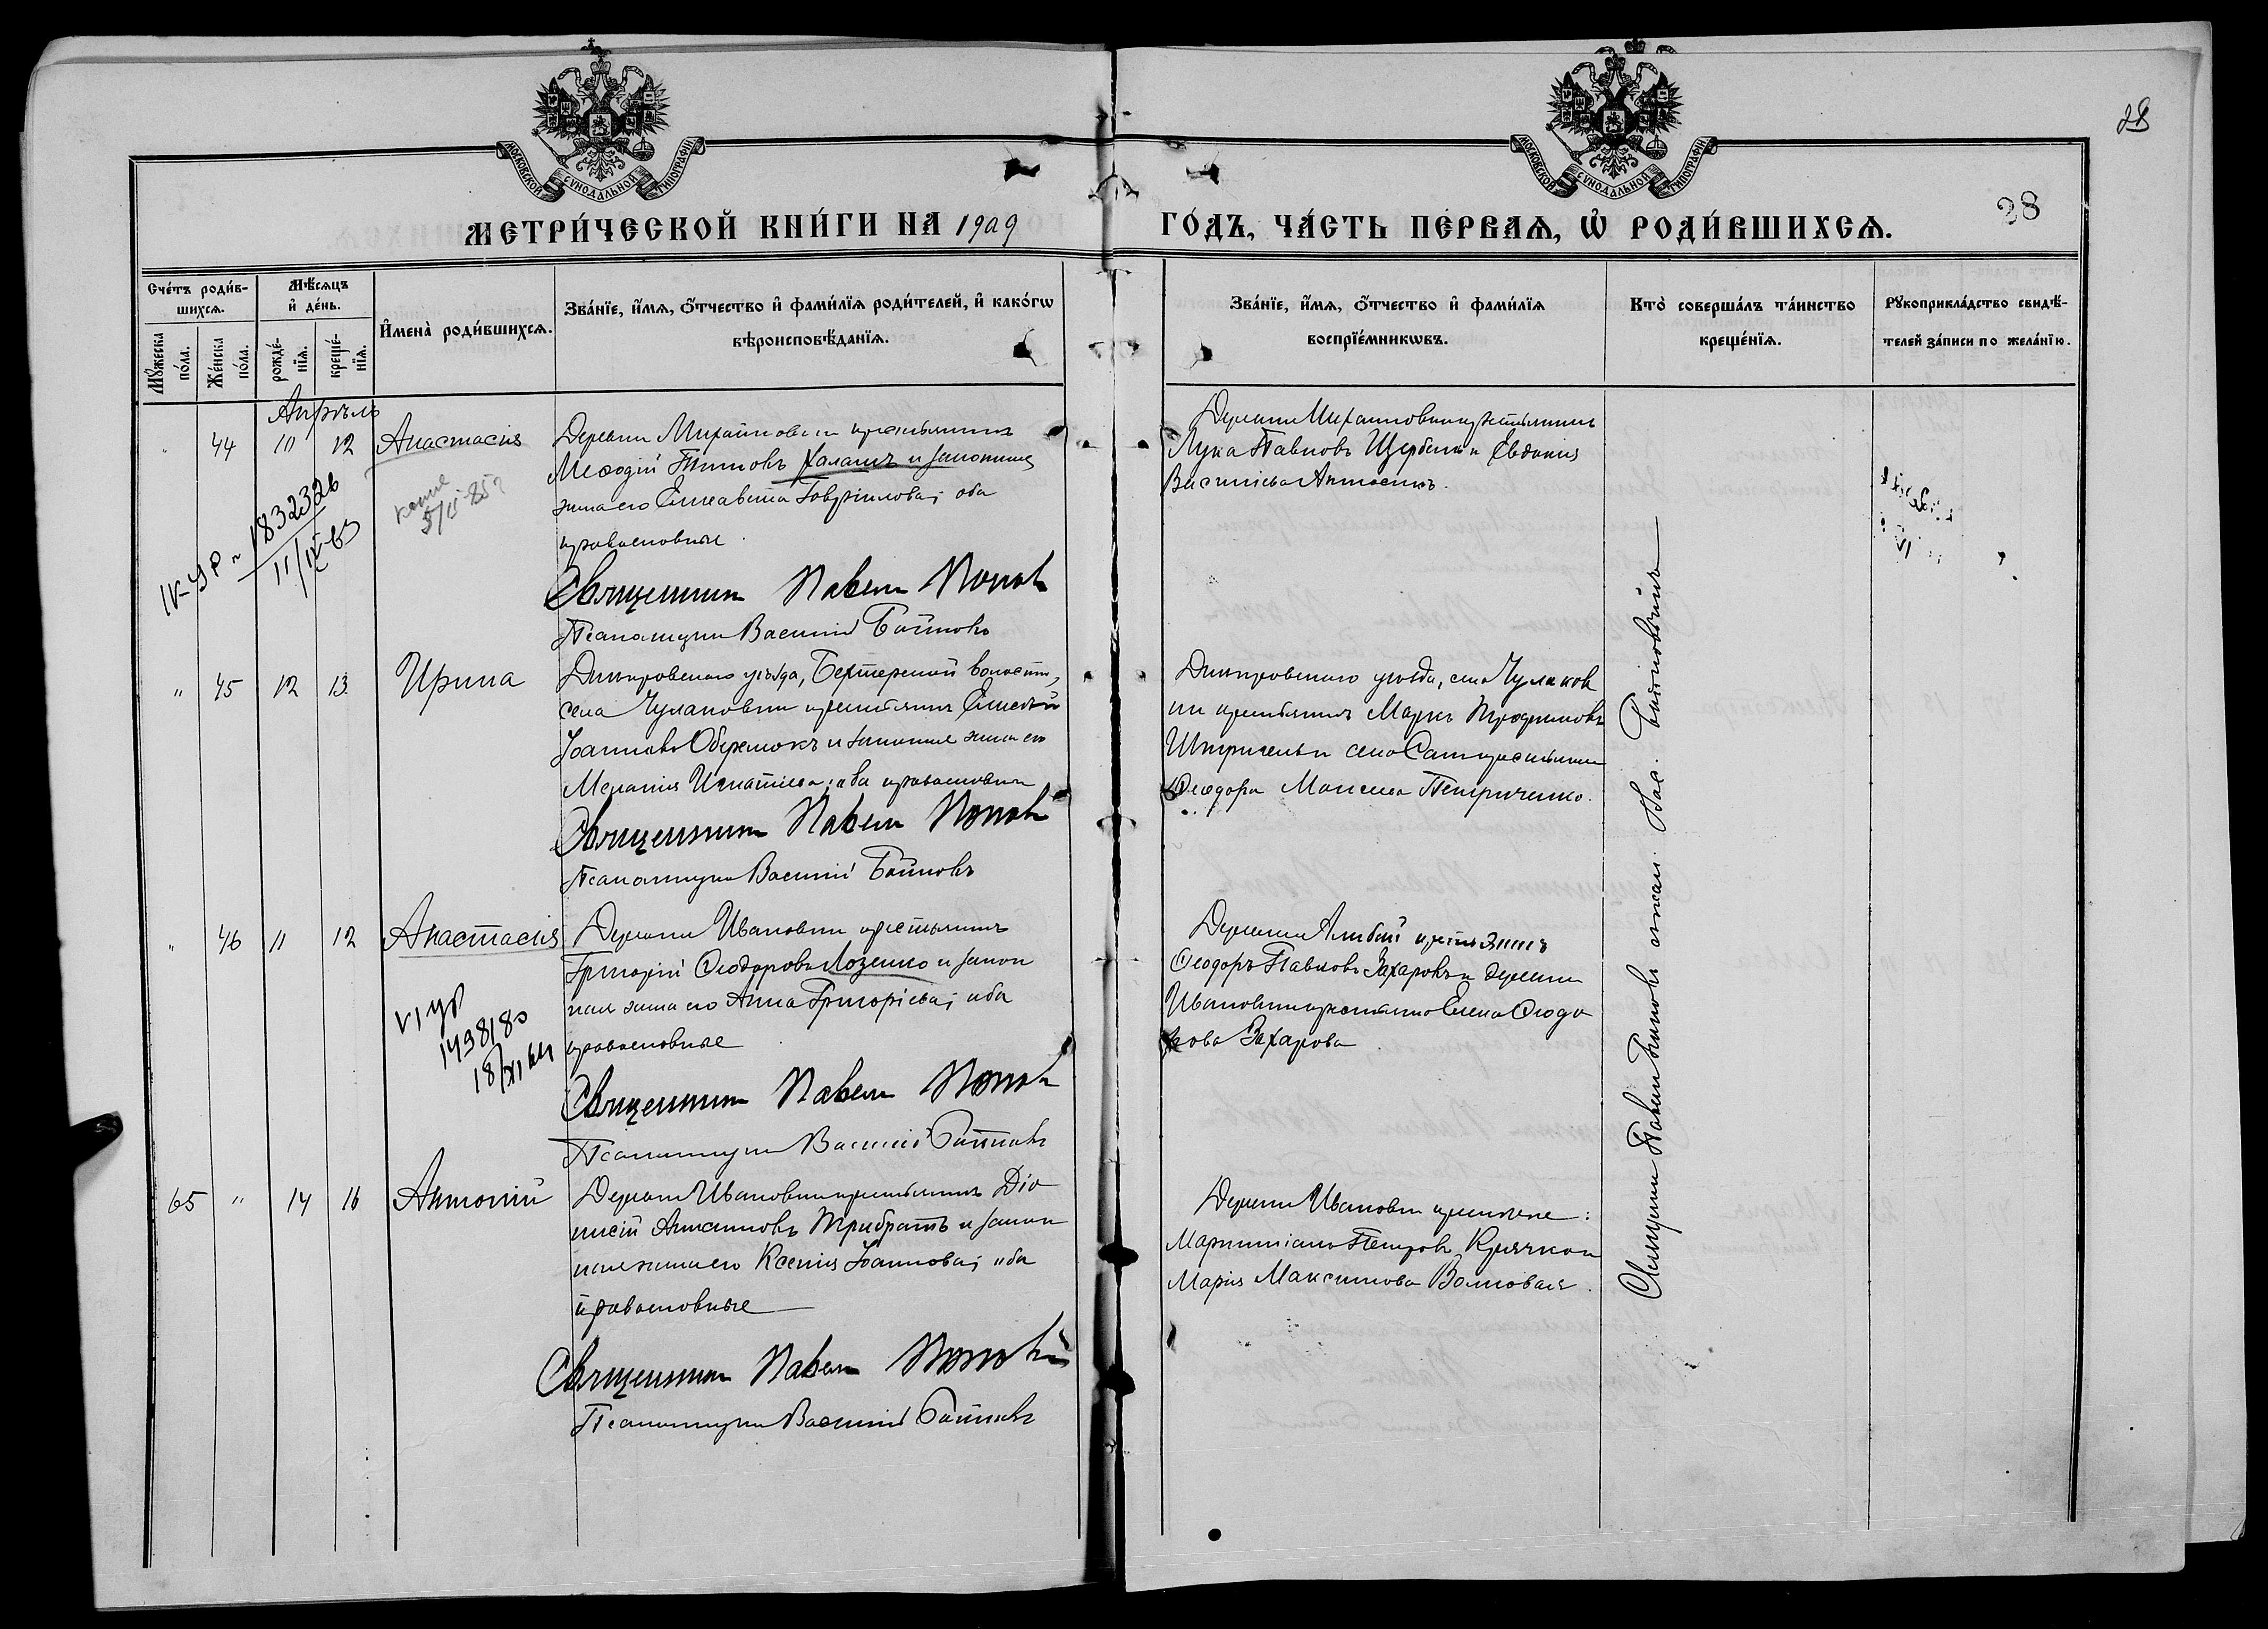 МОСКОВСКОЙ СУНОДАЛЬНОЙ ТИПОГРАФІИ
МОСКОВСКОЙ СУНОДАЛЬНОЙ ТИПОГРАФІИ
28
28
МЕТРИ́ЧЕСКОЙ КНИ́ГИ НА 1909
ГО́ДЪ, ЧА́СТЬ ПЕ́РВАѦ, Ѡ҆ РОДИ́ВШИХСѦ.
Сче́тъ роди́в-
шихсѧ.
Мꙋ́жеска
по́ла.
Же́нска
по́ла.
Мѣ́сяцъ
и҆ де́нь.
рожде́-
нїѧ.
креще́-
нїѧ.
И҆мена̀ роди́вшихсѧ.
Зва́нїе, и҆́мѧ, ѻ҆́тчество и҆ фами́лїѧ роди́телей, и҆ како́гѡ
вѣроисповѣ́данїѧ.
Зва́нїе, и҆́мѧ, ѻ҆́тчество и҆ фами́лїѧ
воспрїе́мникѡвъ.
Кто̀ соверша́лъ та́инство
креще́нїѧ.
Рꙋкоприкла́дство свидѣ́-
телей за́писи по жела́нїю.
Апрѣль
" 44 11 12 Анастасія
Деревни Михайловки крестьянинъ
Меѳодій Халанъ и законная
жена его Елисавета Гавріилова; оба
православные
Священникъ Павелъ Поповъ
Псаломщикъ Василій Бойновъ
Деревни Михайловки крестьянинъ
Лука Павловъ Щербина и Евдокія
Василіева
IV-УР 1832326
11/IX
копие
" 45 12 13 Ирина
Днѣпровскаго уѣзда, Бехтерской волости,
села Чулаковки крестьянинъ Елисей
Іоанновъ Оберемокъ и законная жена его
Меланія Игнатіева; оба православные
Священникъ Павелъ Поповъ
Псаломщикъ Василій Бойновъ
Днѣпровскаго уѣзда, села Чулаков
ки крестьянинъ Маркъ Трофимовъ
и села крестьянка
Ѳеодора Моисеева Петриченко.
" 46 11 12 Анастасія
Деревни Ивановки крестьянинъ
Григорій Ѳеодоровъ Лозенко и закон
ная жена его Анна Григоріева; оба
православные
Священникъ Павелъ Поповъ
Псаломщикъ Василій Бойновъ
Деревни крестьянинъ
Ѳеодоръ Павловъ Захаровъ и деревни
Ивановки крестьянка Елена Ѳеодо
рова Захарова
VI УР
1498180
18/XI 64
65 " 14 16 Антоній
Деревни Ивановки крестьянинъ Діо
нисій Трибратъ и закон
ная жена его Ксенія Іоаннова; оба
православные
Священникъ Павелъ Поповъ
Псаломщикъ Василій Бойновъ
Деревни Ивановки крестьяне:
Мартиніанъ Петровъ Крячко и
Марія Максимова Волковая.
Священникъ Павелъ Поповъ съ псал. Вас. Бойновымъ